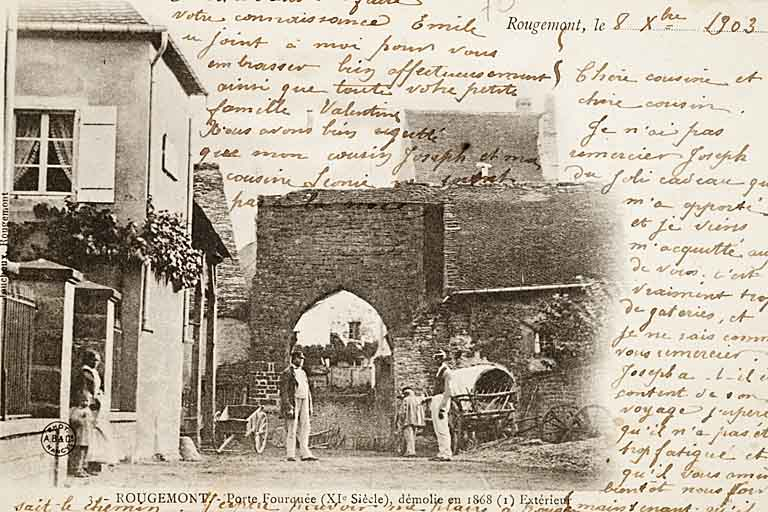 faire
votre connaissance Emile
joint à moi pour vous
embrasser bien affectueusement
ainsi que toute votre petite
famille - Valentine
Nous avons bien regretté
que mon cousin Joseph et ma
cousine Léonie
Rougemont, le 8 Xbre 1903
Chère cousine et
cher cousin.
Je n'ai pas
remercier Joseph
du joli cadeau qu
m'a apporté
et je viens
m'acquitté au
de vous. c'est
vraiment trop
de gateries, et
je ne sais comm
vous remercier
Joseph a-t-il é
content de son
voyage j'espère
qu'il n'a pas ét
trop fatigué et
qu'il vous
bientôt nous
maintenant qu'il
sait le chemin.
Rougemont
PHOT. A B & Cie NANCY
3 - ROUGEMONT - Porte Fourquée (XIe Siècle), démolie en 1868 (1) Extérieur